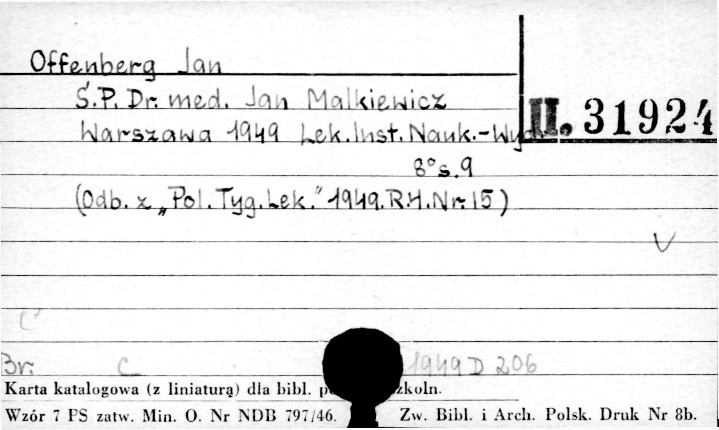 Offenberg Jan
Ś.P. Dr. med. Jan Malkiewicz
II. 31924
Warszawa 1949 Lek. Inst. Nauk.-Wyd.
8° s. 9
(Odb. z „Pol. Tyg. Lek." 1949. R.4. Nr. 15)
C
Br. C 1949 D 206
Karta katalogowa (z liniaturą) dla bibl. szkoln.
Wzór 7 PS zatw. Min. O. Nr NDB 797/46. Zw. Bibl. i Arch. Polsk. Druk Nr 8b.